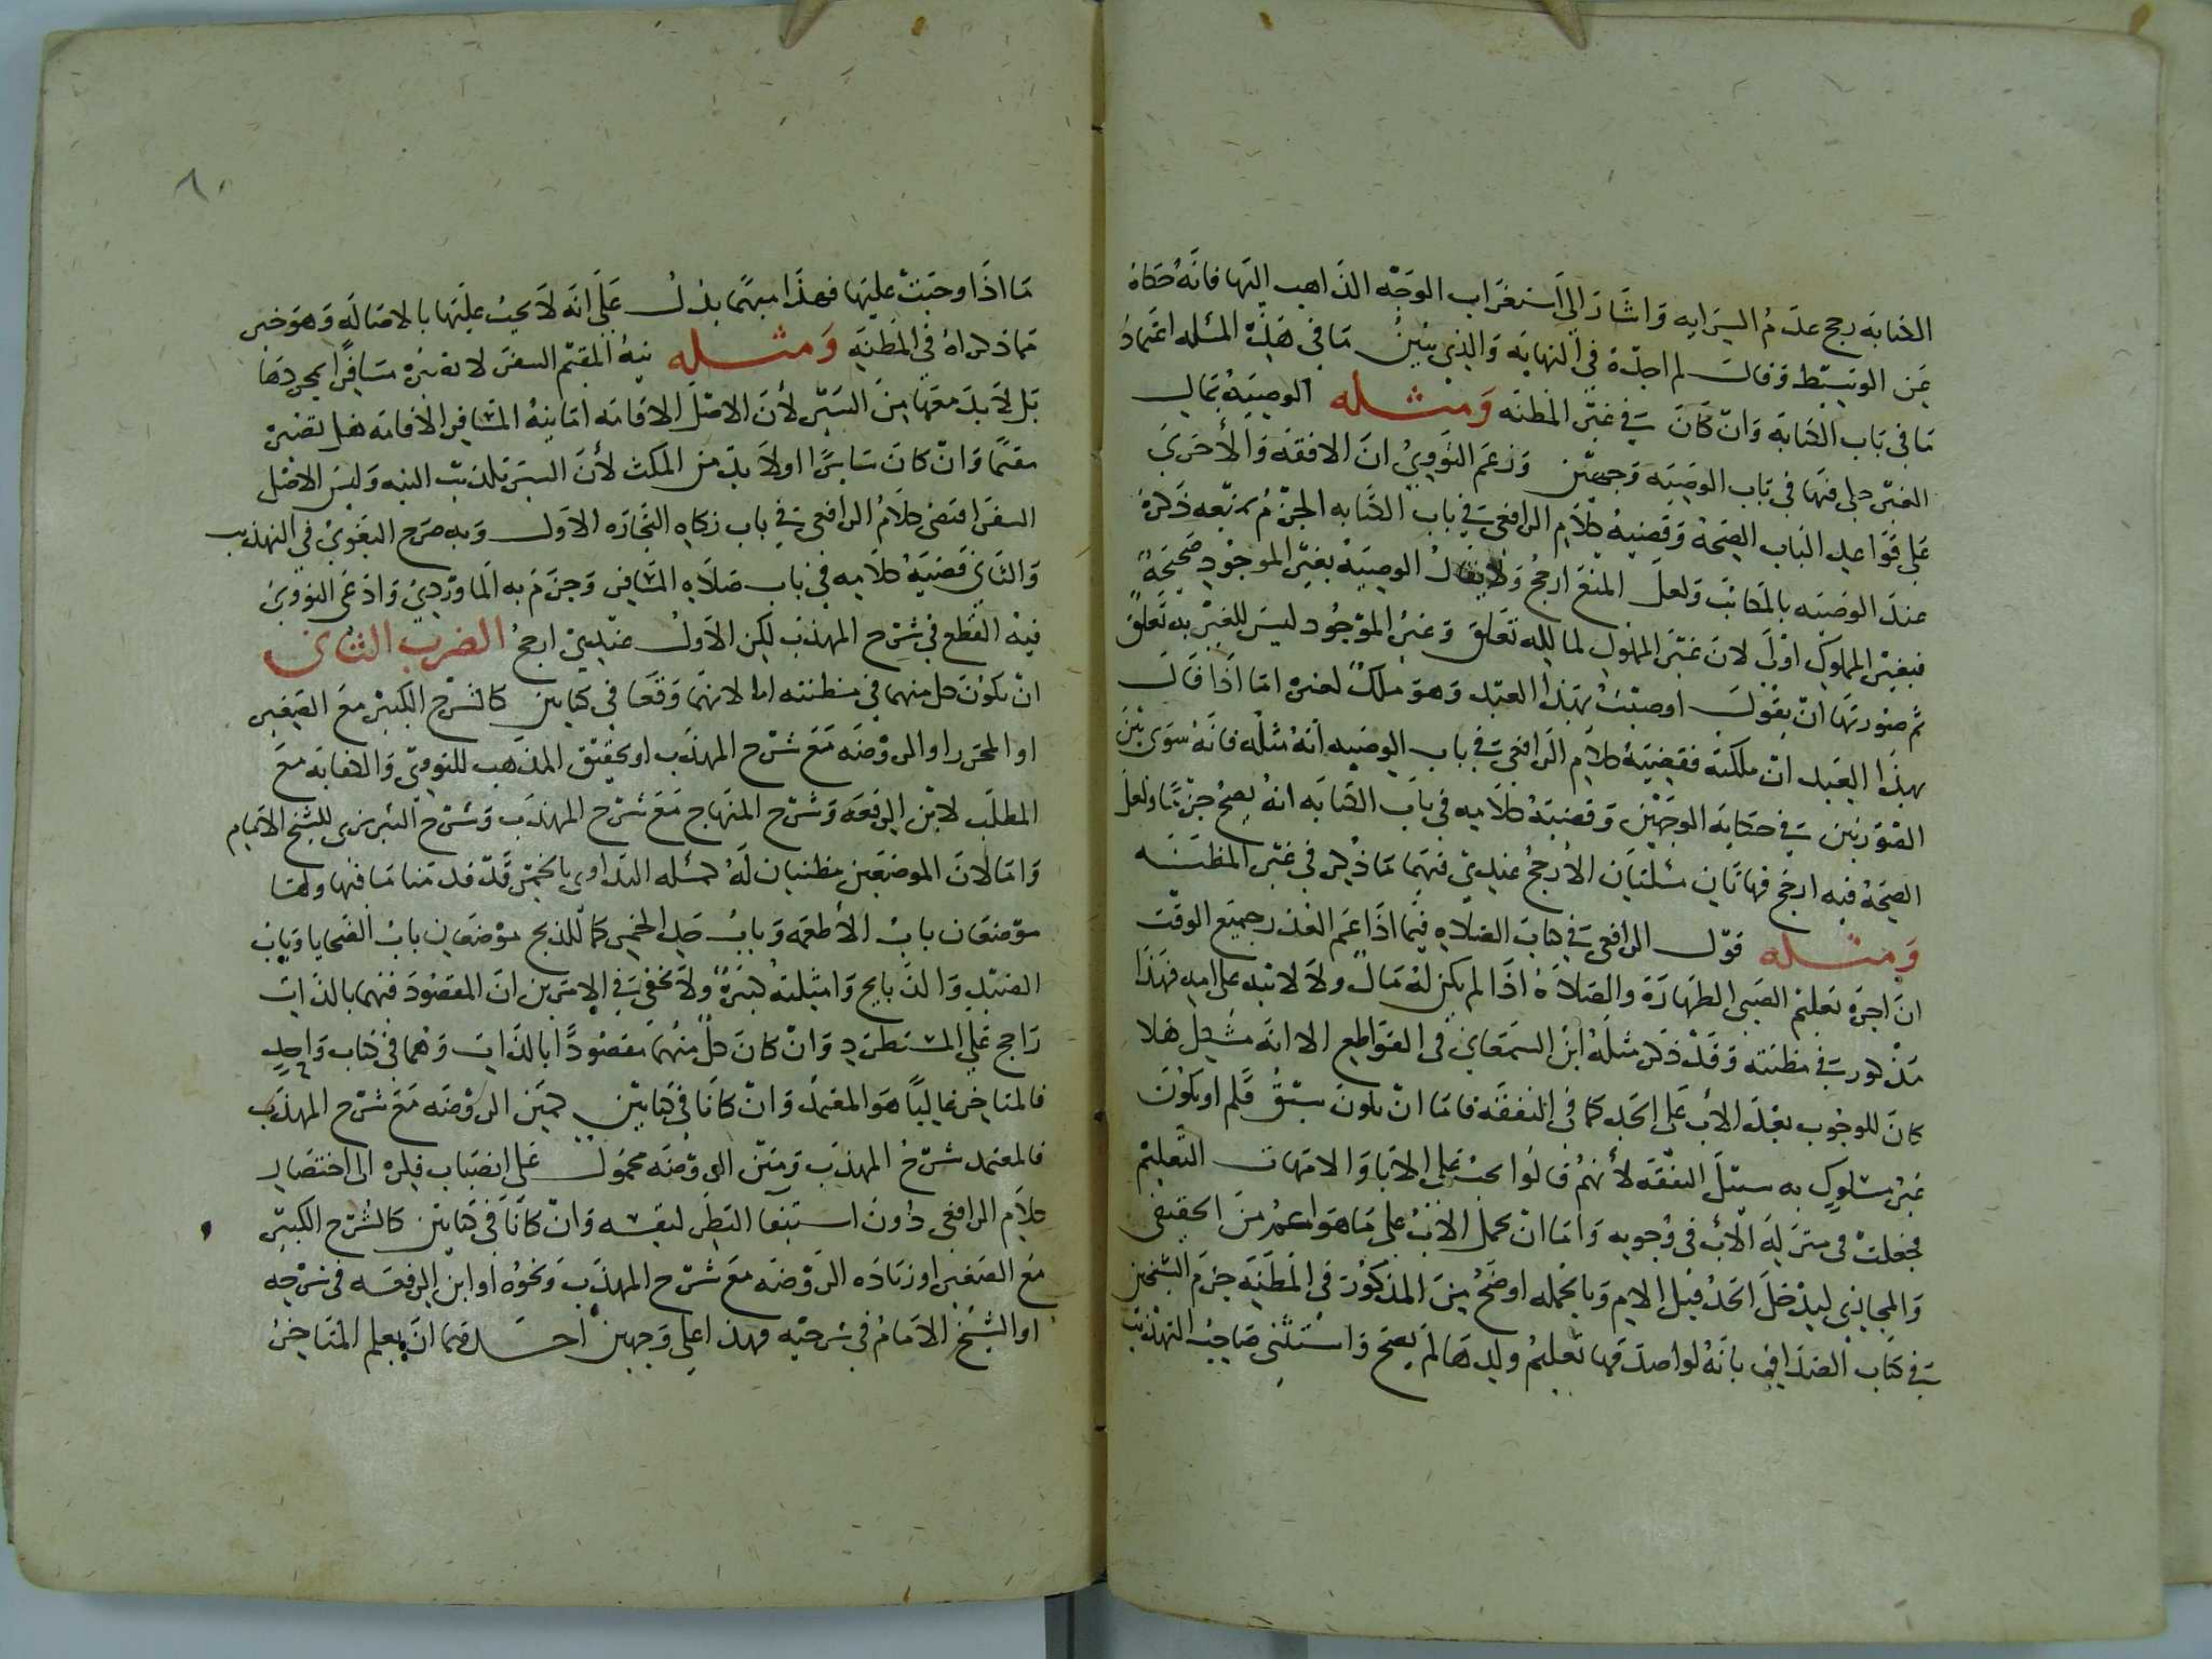 الكتابه رجح عدم السرايه واشار الى استغراب الوجه الذاهب اليها فانه حكاه
عن الوسيط وقال لم اجده في النهايه والذي يتبين ما في هذه المسله اعتماد
ما في باب الكتابه وان كان في غير المظنه ومثله الوصيه بمال
الغير حكى فيها في باب الوصيه وجهين وزعم النووي ان الافقه والأحرى
على قواعد الباب الصحه وقضيه كلام الرافعي في باب الكتابه الجزم بمنعه ذكره
عند الوصيه بالمكاتب ولعل المنع ارجح ولا يقال الوصيه بغير الموجود صحيحه
فبغير المملوك اولى لان غير المملوك لمالكه تعلق وغير الموجود ليس للغير به تعلق
ثم صورتها ان يقول اوصيت بهذا العبد وهو ملك لغيره اما اذا قال
بهذا العبد ان ملكته فقضيه كلام الرافعي في باب الوصيه انه مثله فانه سوى بين
الصورتين في حكايه الوجهين وقضيه كلامه في باب الكتابه انه يصح جزما ولعل
الصحه فيه ارجح فهاتان مسلتان الأرجح عندي فيهما ما ذكر في غير المظنه
ومثله قول الرافعي في كتاب الصلاه فيما اذا عم العذر جميع الوقت
ان اجره تعليم الصبي الطهاره والصلاه اذا لم يكن له مال ولا لابيه على امه فهذا
مذكور في مظنته وقد ذكر مثله ابن السمعاني في القواطع الا انه مشكل هلا
كان للوجوب بعد الأب على الجد كما في النفقه فاما ان يكون سبق قلم او يكون
غير مسلوك به سبيل النفقه لأنهم قالوا يجب على الابا والامهات التعليم
فجعلت في منزله الأب في وجوبه واما ان يحمل الأب على ما هو اعم من الحقيقي
والمجازي ليدخل الجد قبل الام وبالجمله اوضح من المذكور في المظنه جزم الشيخين
في كتاب الصداق بانه لو اصدقها تعليم ولدها لم يصح واستثنى صاحب التهذيب
٨٠
ما اذا وجبت عليها فهذا منهما يدل على انه لا يجب عليها بالاصاله وهو خير
مما ذكراه في المظنه ومثله نيه المقيم السفر لا تصيره مسافرا بمجردها
بل لا بد معها من السير لأن الاصل الاقامه اما نيه المسافر الاقامه هل تصيره
مقيما وان كان سايرا اولا بد من المكث لأن السير يكذب النيه وليس الاصل
السفر اقتضى كلام الرافعي في باب زكاه التجاره الاول وبه صرح البغوي في التهذيب
والثاني قضيه كلامه في باب صلاه المسافر وجزم به الماوردي وادعى النووي
فيه القطع في شرح المهذب لكن الاول عندي ارجح الضرب الثاني
ان يكون كل منهما في مظنته اما لانهما وقعا في كتابين كالشرح الكبير مع الصغير
او المحرر او الروضه مع شرح المهذب او تحقيق المذهب للنووي والكفايه مع
المطلب لابن الرفعه وشرح المنهاج مع شرح المهذب وشرح التبريزي للشيخ الامام
واما لان الموضعين مظنتان له كمسله التداوي بالخمر قد قدمنا ما فيها ولها
موضعان باب الأطعمه وباب حد الخمر كما للذبح موضعان باب الضحايا وباب
الصيد والذبايح وامثلته كثيره ولا يخفى في الامرين ان المقصود فيهما بالذات
راجح على المستطرد وان كان كل منهما مقصودا بالذات وهما في كتاب واحد
فالمتاخر غالبا هو المعتمد وان كانا في كتابين كمتن الروضه مع شرح المهذب
فالمعتمد شرح المهذب ومتن الروضه محمول على انصباب فكره الى اختصار
كلام الرافعي دون استيفا النظر لنفسه وان كانا في كتابين كالشرح الكبير
مع الصغير او زياده الروضه مع شرح المهذب ونحوه او ابن الرفعه في شرحيه
او الشيخ الامام في شرحيه فهذا على وجهين احدهما ان يعلم المتاخر